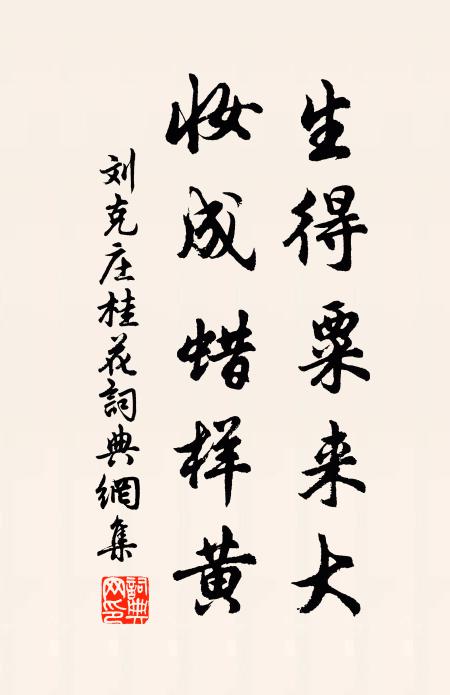 生得粟来大
妆成蜡样黄
刘克庄桂花詞典網集
詞典网印